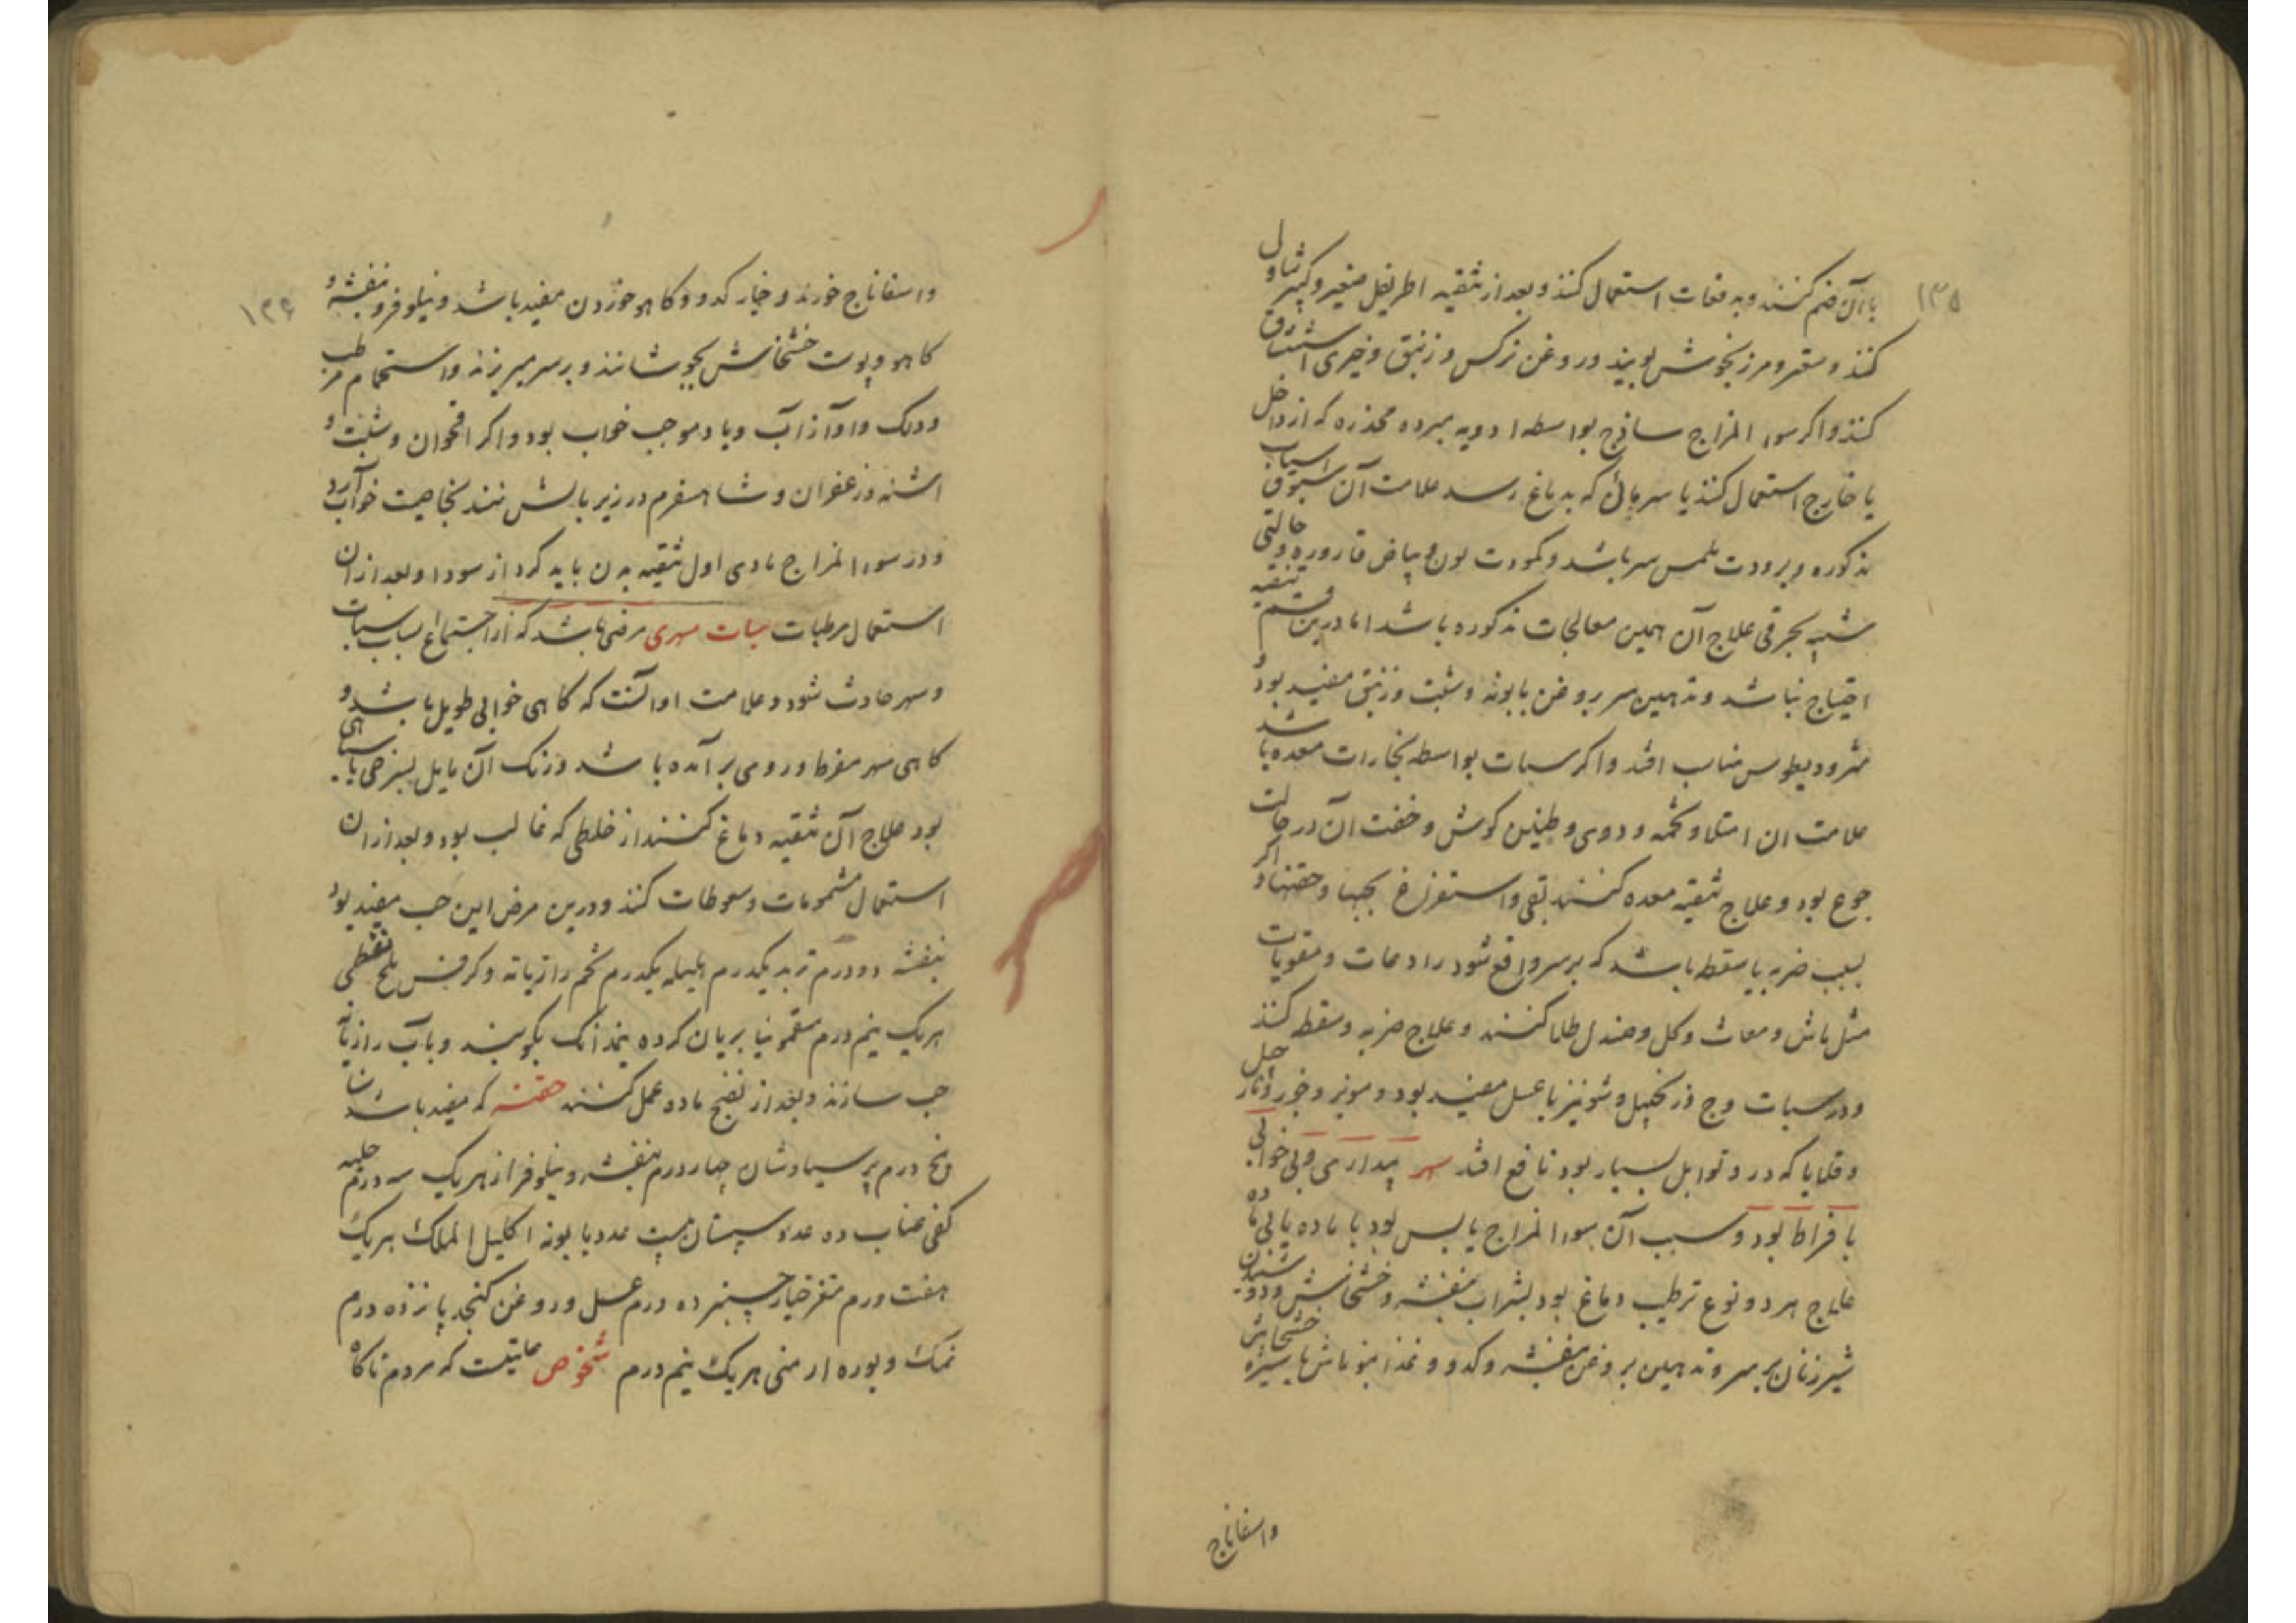 ۱۳۵
باآن ضم کنند و به دفعات استعمال کنند و بعد از تنقیه اطریفل صغیر و کبیر تناول
کنند و سعتر و مرزنجوش بویند و روغن نرکس و زنبق و خیری استنشاق
کنند و اکر سوء المزاج ساذج بواسطه ادویه مبرده مخدره که از داخل
یا خارج استعمال کنند یا سرمائی که بدماغ رسد علامت آن اسباب
مذکوره و برودت ملمس سر باشد و کمودت لون و بیاض قاروره و حالتی
شبیه بجرقی علاج آن همین معالجات مذکوره باشد اما درین قسم تنقیه
احتیاج نباشد و تدهین سر بروغن بابونه و شبت و زنبق مفید بود و
مثرودیطوس مناسب افتد و اکر سبات بواسطه بخارات معده باشد
علامت ان امتلا و تخمه و دوی و طنین کوش و خفت آن در حالت
جوع بود و علاج تنقیه معده کنند بقی و استفراغ بحبها و حقنها و اکر
بسبب ضربه یا سقطه باشد که بر سر واقع شود رادعات و مقویات
مثل ماش و مغاث و کل و صندل طلا کنند و علاج ضربه و سقطه کنند
و در سبات وج و زنجبیل و شونیز با عسل مفید بود و مویز و
و قلایا که درو توابل بسیار بود نافع افتد سهر بیداری و بی خوابی
بافراط بود و سبب آن سوء المزاج یابس بود با ماده یا بی ماده
علاج هر دو نوع ترطیب دماغ بود بشراب بنفشه و خشخاش و دوشیدن
شیر زنان بر سر و تدهین بروغن بنفشه و کدو و غذا ماش با شیره خشخاش
واسفاناج
۱۳۶
واسفاناج خورند و خیار کدو و کاهو خوردن مفید باشد و نیلوفر و بنفشه و
کاهو و پوست خشخاش بجوشانند و بر سر میریزند و استحمام مرطب
و دلک و آواز آب و باد موجب خواب بود و اکر اقحوان و شبت و
اشنه و زعفران و شاهسفرم در زیر بالش نهند بخاصیت خواب آرد
و در سوء المزاج مادی اول تنقیه بدن باید کرد از سودا و بعد ازان
استعمال مرطبات سبات سهری مرضی باشد که از اجتماع اسباب سبات
و سهر حادث شود و علامت او آنست که کاهی خوابی طویل باشد و
کاهی سهر مفرط و روی بر آمده باشد و رنک آن مایل بسرخی یا سیاهی
بود علاج آن تنقیه دماغ کنند از خلطی که غالب بود و بعد ازان
استعمال مشمومات و سعوطات کنند و درین مرض این حب مفید بود
بنفشه دو درم تربد یکدرم هلیله یکدرم تخم رازیانه و کرفس ملح نفطی
هریک نیم درم سقمونیا بریان کرده نیمدانک بکوبند و بآب رازیانه
حب سازند و بعد از نضج ماده عمل کنند حقنه که مفید باشد سنا
پنج درم پرسیاوشان چهار درم بنفشه و نیلوفر از هریک سه درم حلبه
کفی عناب ده عدد سپستان بیست عدد بابونه اکلیل الملک هریک
هفت درم مغز خیار چنبر ده درم عسل و روغن کنجد پانزده درم
نمک و بوره ارمنی هریک نیم درم شخوص علتیست که مردم ناکاه